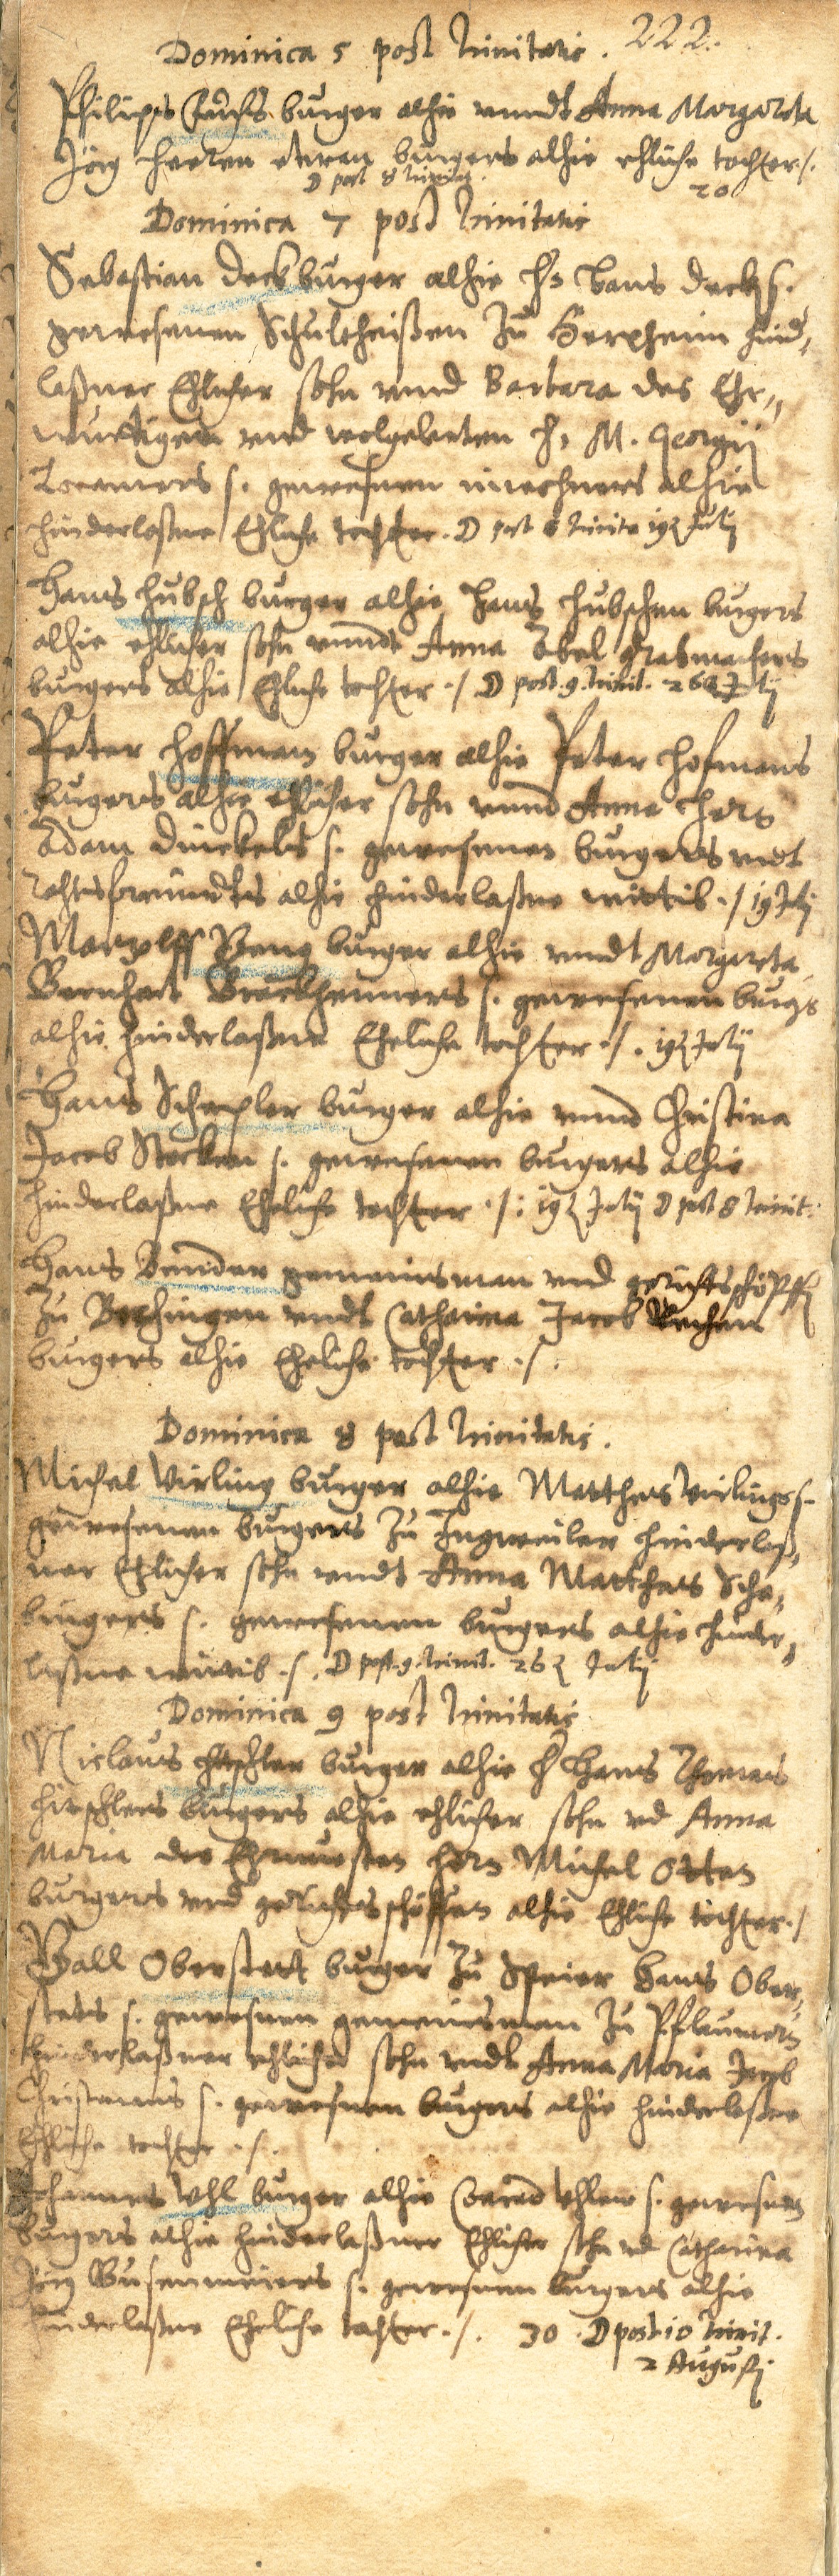 222.
Dominica 5 post Trinitatis.
Philips burger alhie vnndt Anna Margareta
Jörg etwan burgers alhie ehliche tochter ./.
D post 8 Trinitat. 20
Dominica 7 post Trinitatis
Sebastian Deck burger alhie Hans Decks s.
gewesenen Schultheißen zu Herxheim hind„
laßner Ehlicher sohn vnnd Barbara des Ehr„
wurdigen vnd wolgelerten H. M. Georgii
s. gewesnen alhie
hinderlaßne Ehliche tochter. D post 8 Trinita 19 Julij
Hans Hubsch burger alhie Hans Hubschen burgers
alhie ehlicher sohn vnndt Anna Abel Grabmachers
burgers alhie Ehliche tochter ./ D post. 9. Trinit. 26 Julij
Peter Hoffman burger alhie Peter Hofmans
burgers alhie ehlicher sohn vnnd Anna Hern
Adam Dinckels s. gewesenen burgers vndt
Rahtsfreundts alhie hinderlaßne wittib ./ 19 Julij
burger alhie vnndt Margareta
Bernhart s. gewesenen burgers
alhie hinderlaßne Eheliche tochter ./. 19 Julij
Hans burger alhie vnnd Christina
Jacob s. gewesenen burgers alhie
hinderlaßne Eheliche tochter ./: 19 Julij D post 8 Trinit.
Hans Bender gemeinsman vnd gerichtsschöpff
zu Bechingen vndt Catharina Jacob
burgers alhie Eheliche tochter ./.
Dominica 8 post Trinitatis.
Michel Virling burger alhie Matthes Virlings s.
gewesenen burgers zu Ingweiler hinderlaß„
ner Ehlicher sohn vndt Anna Matthes Sche„
lingers s. gewesenen burgers alhie hinder„
laßne wittib ./. D post. 9. Trinit. 26 Julij
Dominica 9 post Trinitatis
Niclaus burger alhie H Hans Thomas
Hirschlers burgers alhie ehlicher sohn vd Anna
Maria des Ehrnuesten Hern Michel Otten
burgers vnd gerichtsschöffen alhie Ehliche tochter ./
Ball Oberstett burger zu Speier Hans Ober„
stets s. gewesnen gemeinsman zu
hinderlaßner ehlicher sohn vndt Anna Maria Jacob
Christmans s. gewesnen burgers alhie hinderlaßne
Ehliche tochter ./.
Johannes Uhl burger alhie Conrad Uhlen s. gewesnen
burgers alhie hinderlaßner Ehlicher sohn vd Catharina
Jörg Busenmeiers s. gewesnen burgers alhie
hinderlaßne Eheliche tochter ./. 30. D post 10 Trinit.
2 Augusti